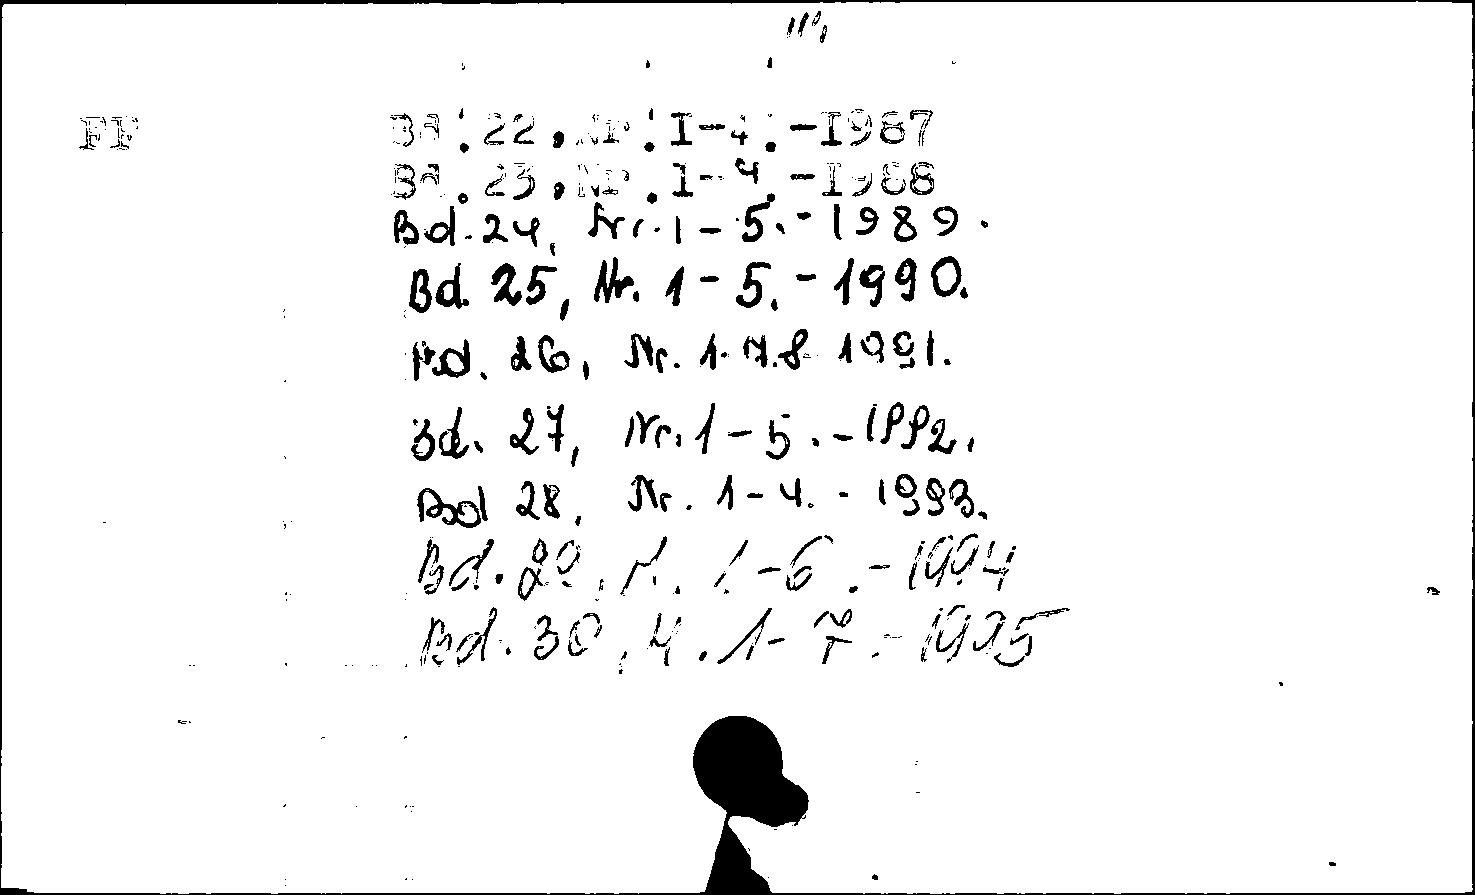 FF Bd.22,Nr.I-4.-I987
Bd.23,Nr.1-4.-I988
Bd. 24, Nr. 1-5.-1989.
Bd. 25, Nr. 1-5.-1990.
Bd. 26, Nr. 1-7.8 1991.
Bd. 27, Nr. 1-5.-1992.
Bd 28, Nr. 1-4.-1993.
Bd. 29, N. 1-6.-1994
Bd. 30, N. 1-7.-1995